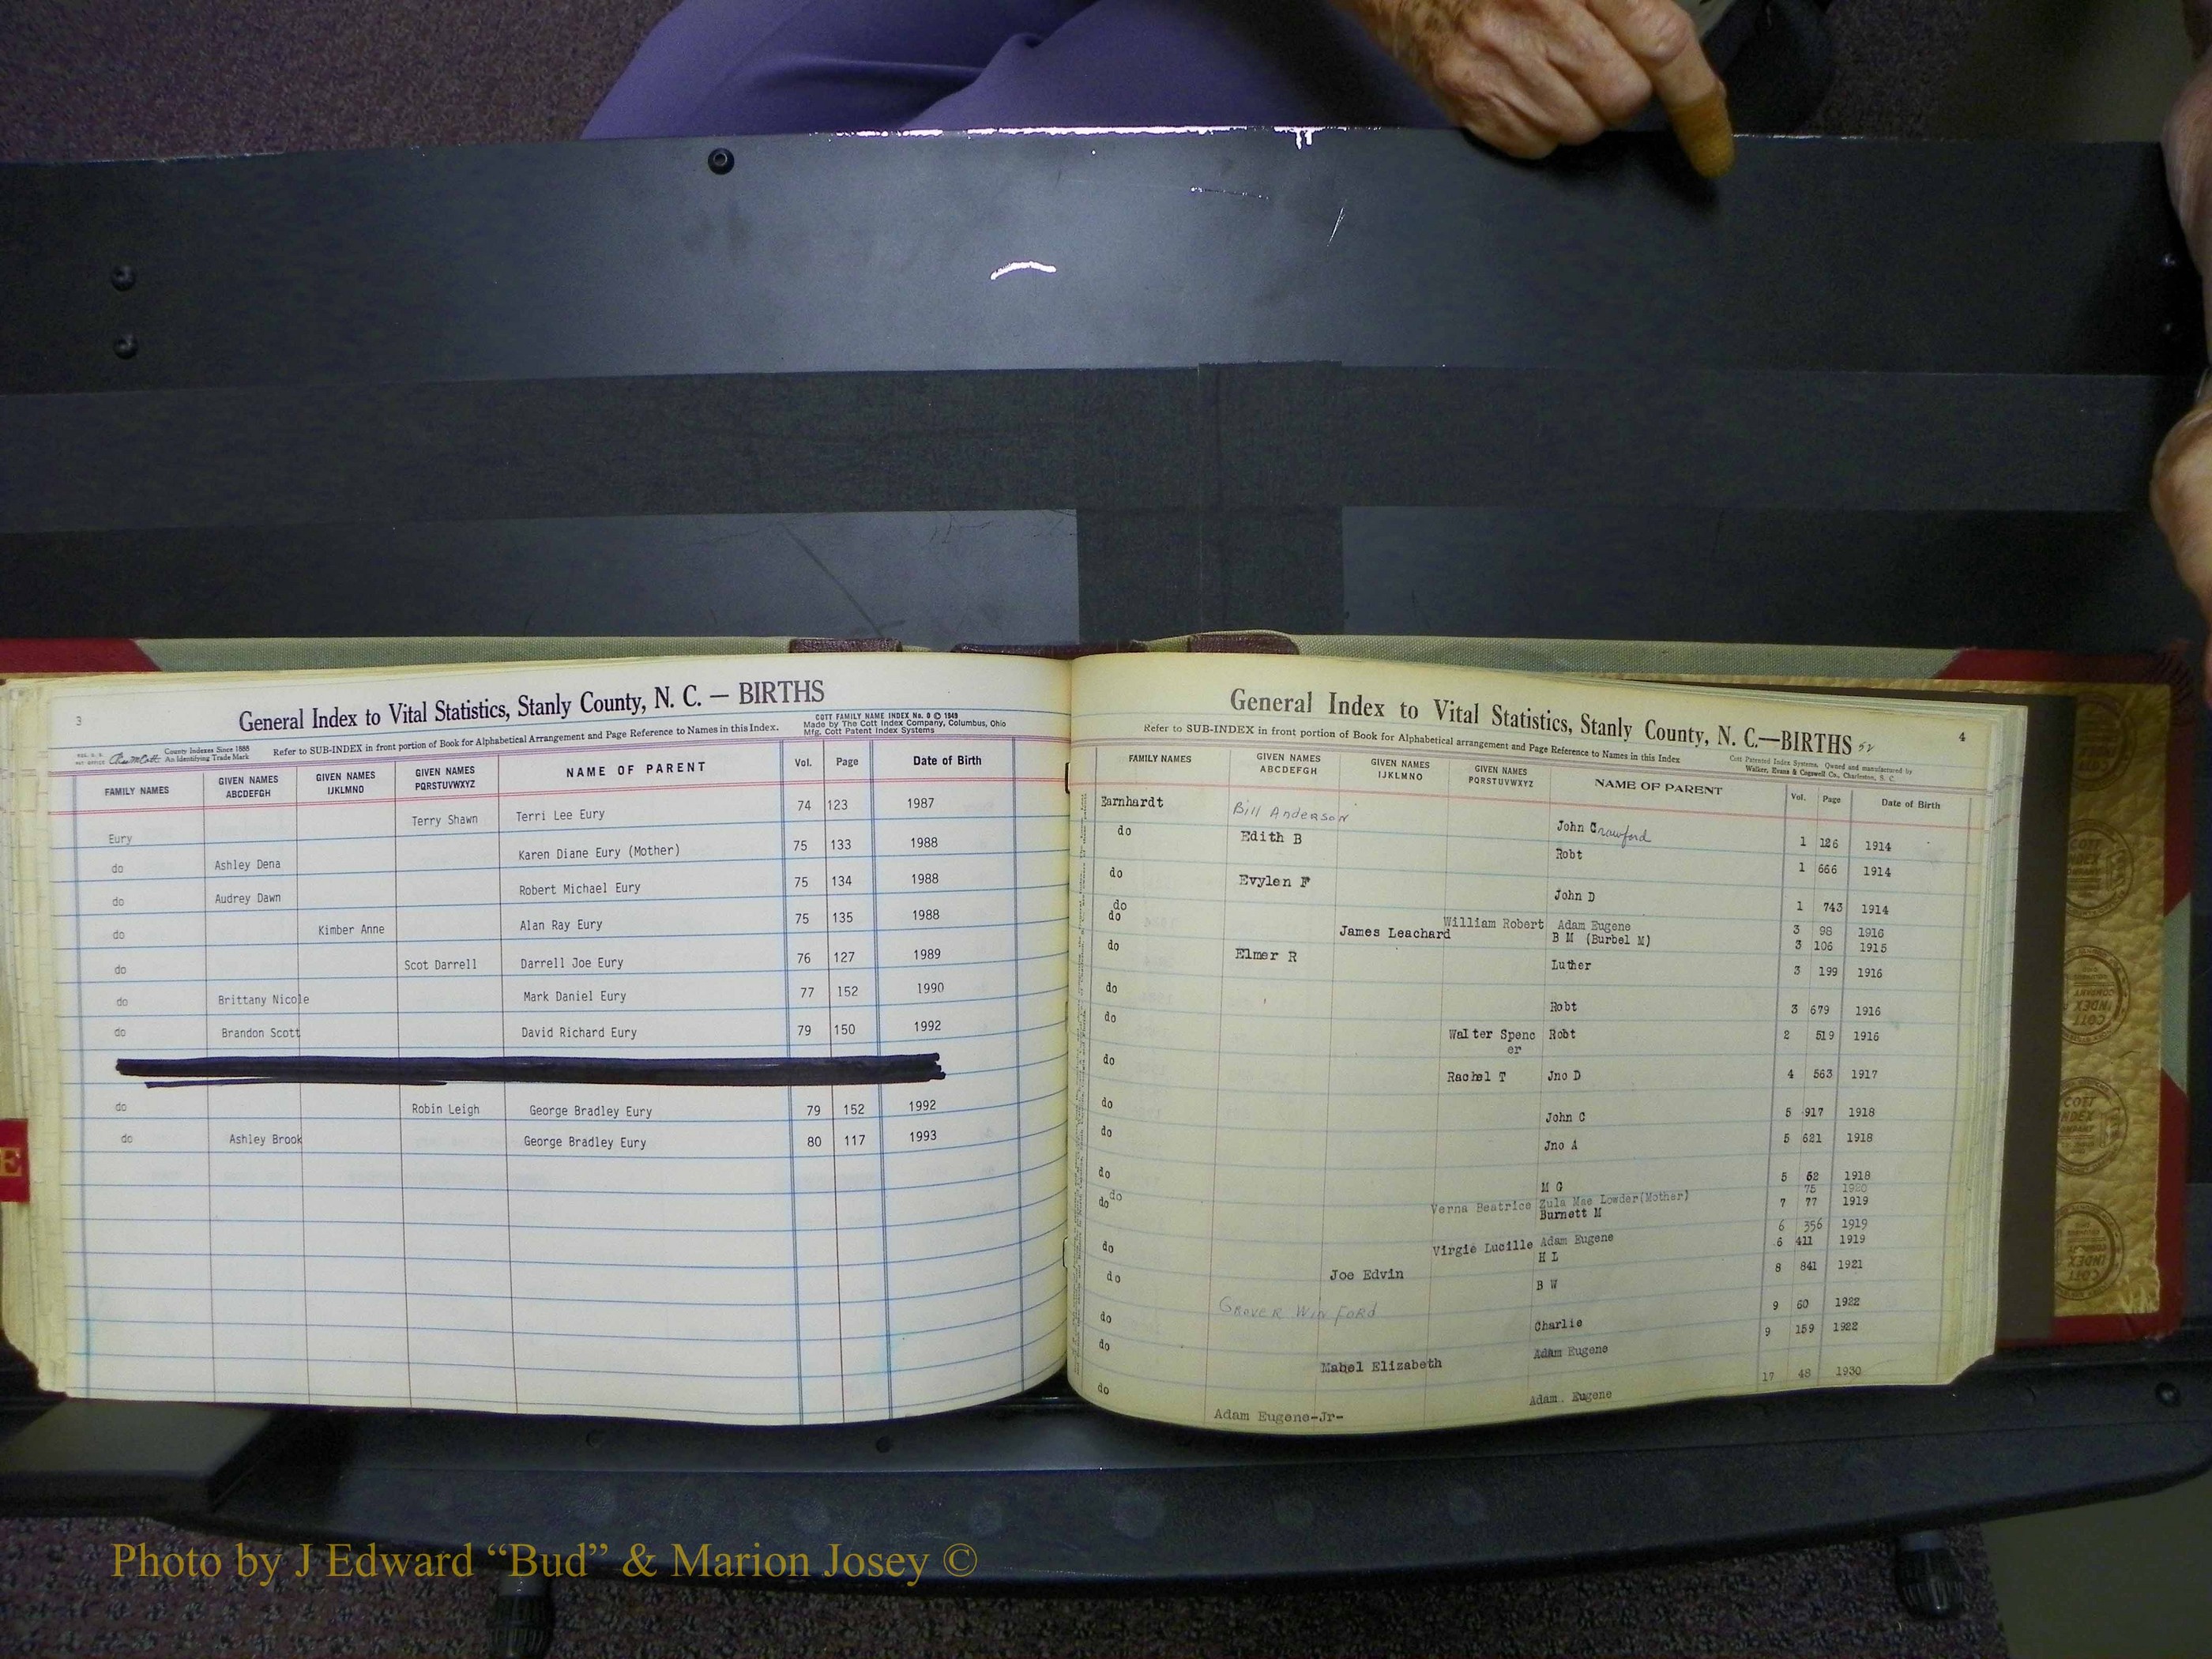 3
General Index to Vital Statistics, Stanly County, N. C. — BIRTHS
COTT FAMILY NAME INDEX No. 8 © 1949
Made by The Cott Index Company, Columbus, Ohio
Mfg. Cott Patent Index Systems
County Indexes Since 1888
An Identifying Trade Mark
Refer to SUB-INDEX in front portion of Book for Alphabetical Arrangement and Page Reference to Names in this Index.
FAMILY NAMES GIVEN NAMES ABCDEFGH GIVEN NAMES IJKLMNO GIVEN NAMES PQRSTUVWXYZ NAME OF PARENT Vol. Page Date of Birth
Eury Terry Shawn Terri Lee Eury 74 123 1987
do Ashley Dena Karen Diane Eury (Mother) 75 133 1988
do Audrey Dawn Robert Michael Eury 75 134 1988
do Kimber Anne Alan Ray Eury 75 135 1988
do Scot Darrell Darrell Joe Eury 76 127 1989
do Brittany Nicole Mark Daniel Eury 77 152 1990
do Brandon Scott David Richard Eury 79 150 1992
do Robin Leigh George Bradley Eury 79 152 1992
do Ashley Brook George Bradley Eury 80 117 1993
E
General Index to Vital Statistics, Stanly County, N. C.—BIRTHS 52
4
Refer to SUB-INDEX in front portion of Book for Alphabetical arrangement and Page Reference to Names in this Index
Cott Patented Index Systems, Owned and manufactured by
Walker, Evans & Cogswell Co., Charleston, S. C.
FAMILY NAMES GIVEN NAMES ABCDEFGH GIVEN NAMES IJKLMNO GIVEN NAMES PQRSTUVWXYZ NAME OF PARENT Vol. Page Date of Birth
Earnhardt Bill Anderson John Crawford 1 126 1914
do Edith B Robt 1 666 1914
do Evylen F John D 1 743 1914
do William Robert Adam Eugene 3 98 1916
do James Leachard B M (Burbel M) 3 106 1915
do Elmer R Luther 3 199 1916
do Robt 3 679 1916
do Walter Spencer Robt 2 519 1916
do Rachel T Jno D 4 563 1917
do John C 5 917 1918
do Jno A 5 621 1918
do M G 5 62 1918
do Verna Beatrice Zula Mae Lowder(Mother) 75 1920
do Burnett M 7 77 1919
Virgie Lucille Adam Eugene 6 356 1919
do H L 6 411 1919
do Joe Edvin B W 8 841 1921
do Grover Winford Charlie 9 60 1922
do Mabel Elizabeth Adam Eugene 9 159 1922
do Adam Eugene-Jr- Adam. Eugene 17 48 1930
Photo by J Edward “Bud” & Marion Josey ©